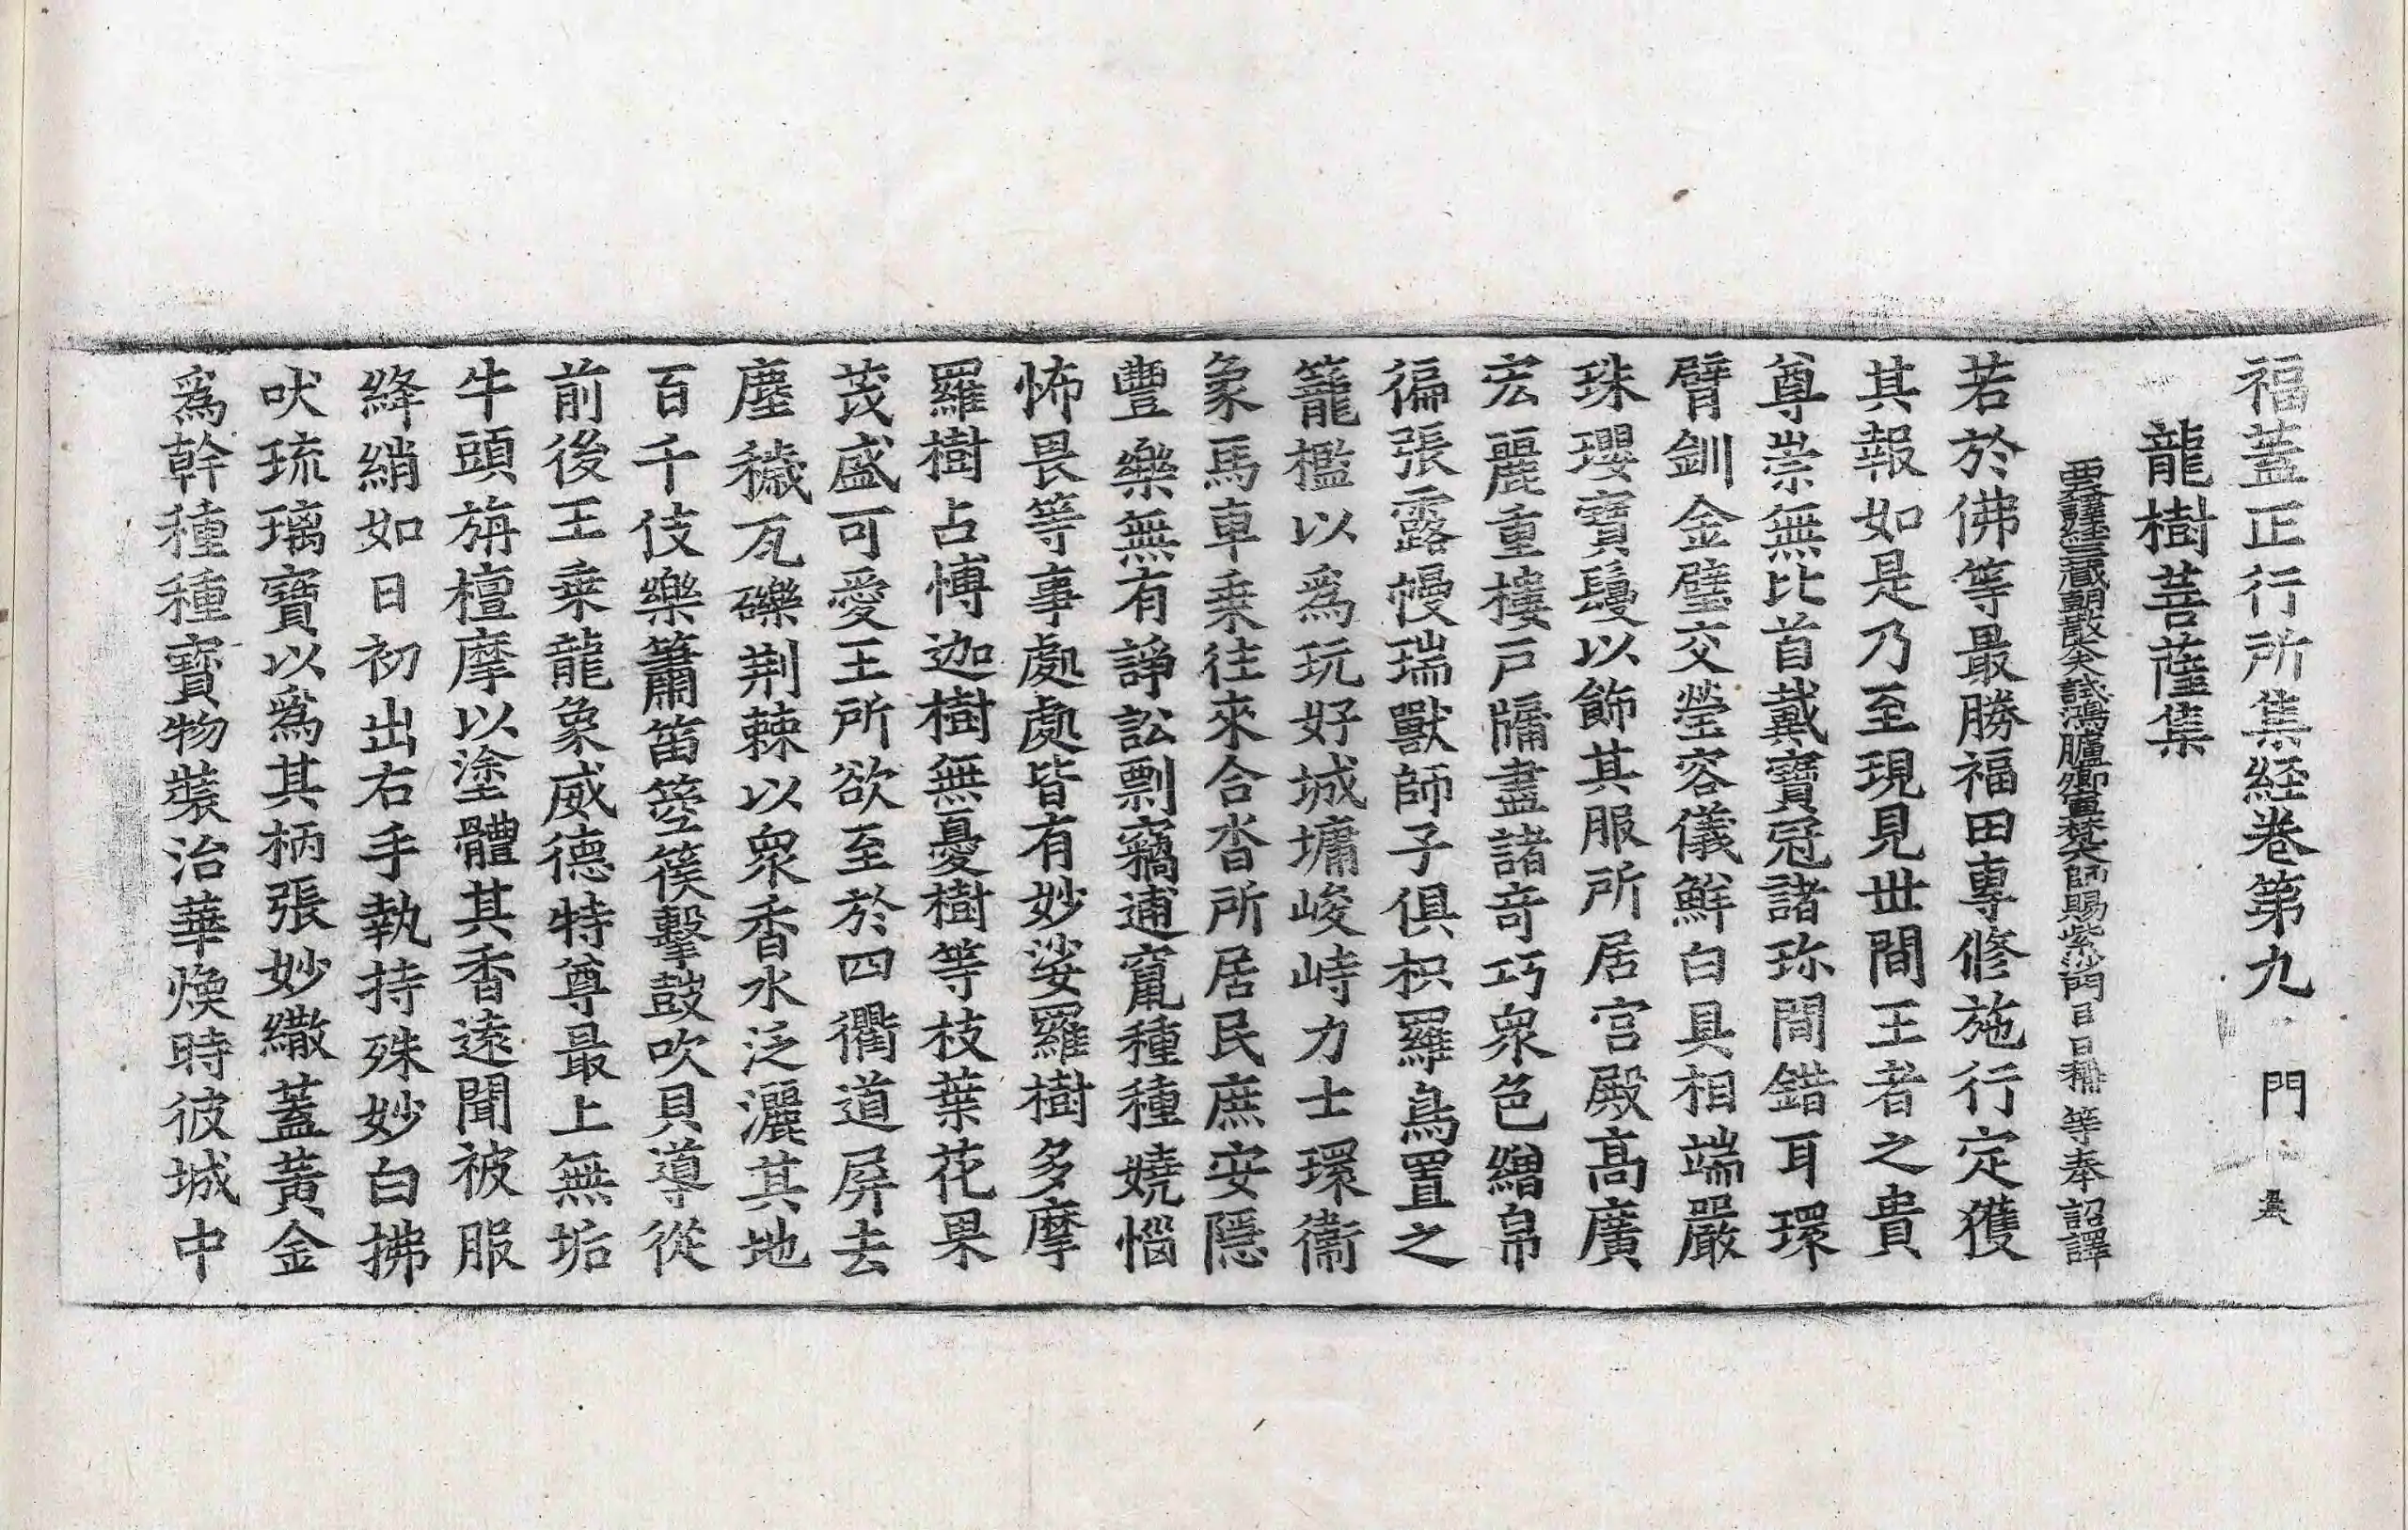 福蓋正行所集経卷第九　門
龍樹菩薩集
西天譯經三藏朝散大夫試鴻臚卿宣梵大師賜紫沙門臣日稱等奉詔譯
若於佛等最勝福田專修施行定獲
其報如是乃至現見世間王者之貴
尊崇無比首戴寶冠諸珎間錯耳環
臂釧金璧交瑩容儀鮮白具相端嚴
珠瓔寶鬘以飾其服所居宮殿高廣
宏麗重樓戶牖盡諸竒巧衆色繒帛
徧張露幔瑞獸師子俱枳羅鳥置之
籠檻以爲玩好城墉峻峙力士環衞
象馬車乗往來合沓所居民庶安隱
豐樂無有諍訟剽竊逋竄種種嬈惱
怖畏等事處處皆有妙娑羅樹多摩
羅樹占博迦樹無憂樹等枝葉花果
茂盛可愛王所欲至於四衢道屏去
塵穢瓦礫荆棘以衆香水泛灑其地
百千伎樂簫笛箜篌擊鼓吹貝導從
前後王乗龍象威德特尊最上無垢
牛頭旃檀摩以塗體其香遠聞被服
絳綃如日初出右手執持殊妙白拂
吠琉璃寶以爲其柄張妙繖蓋黃金
爲幹種種寶物裝治華煥時彼城中